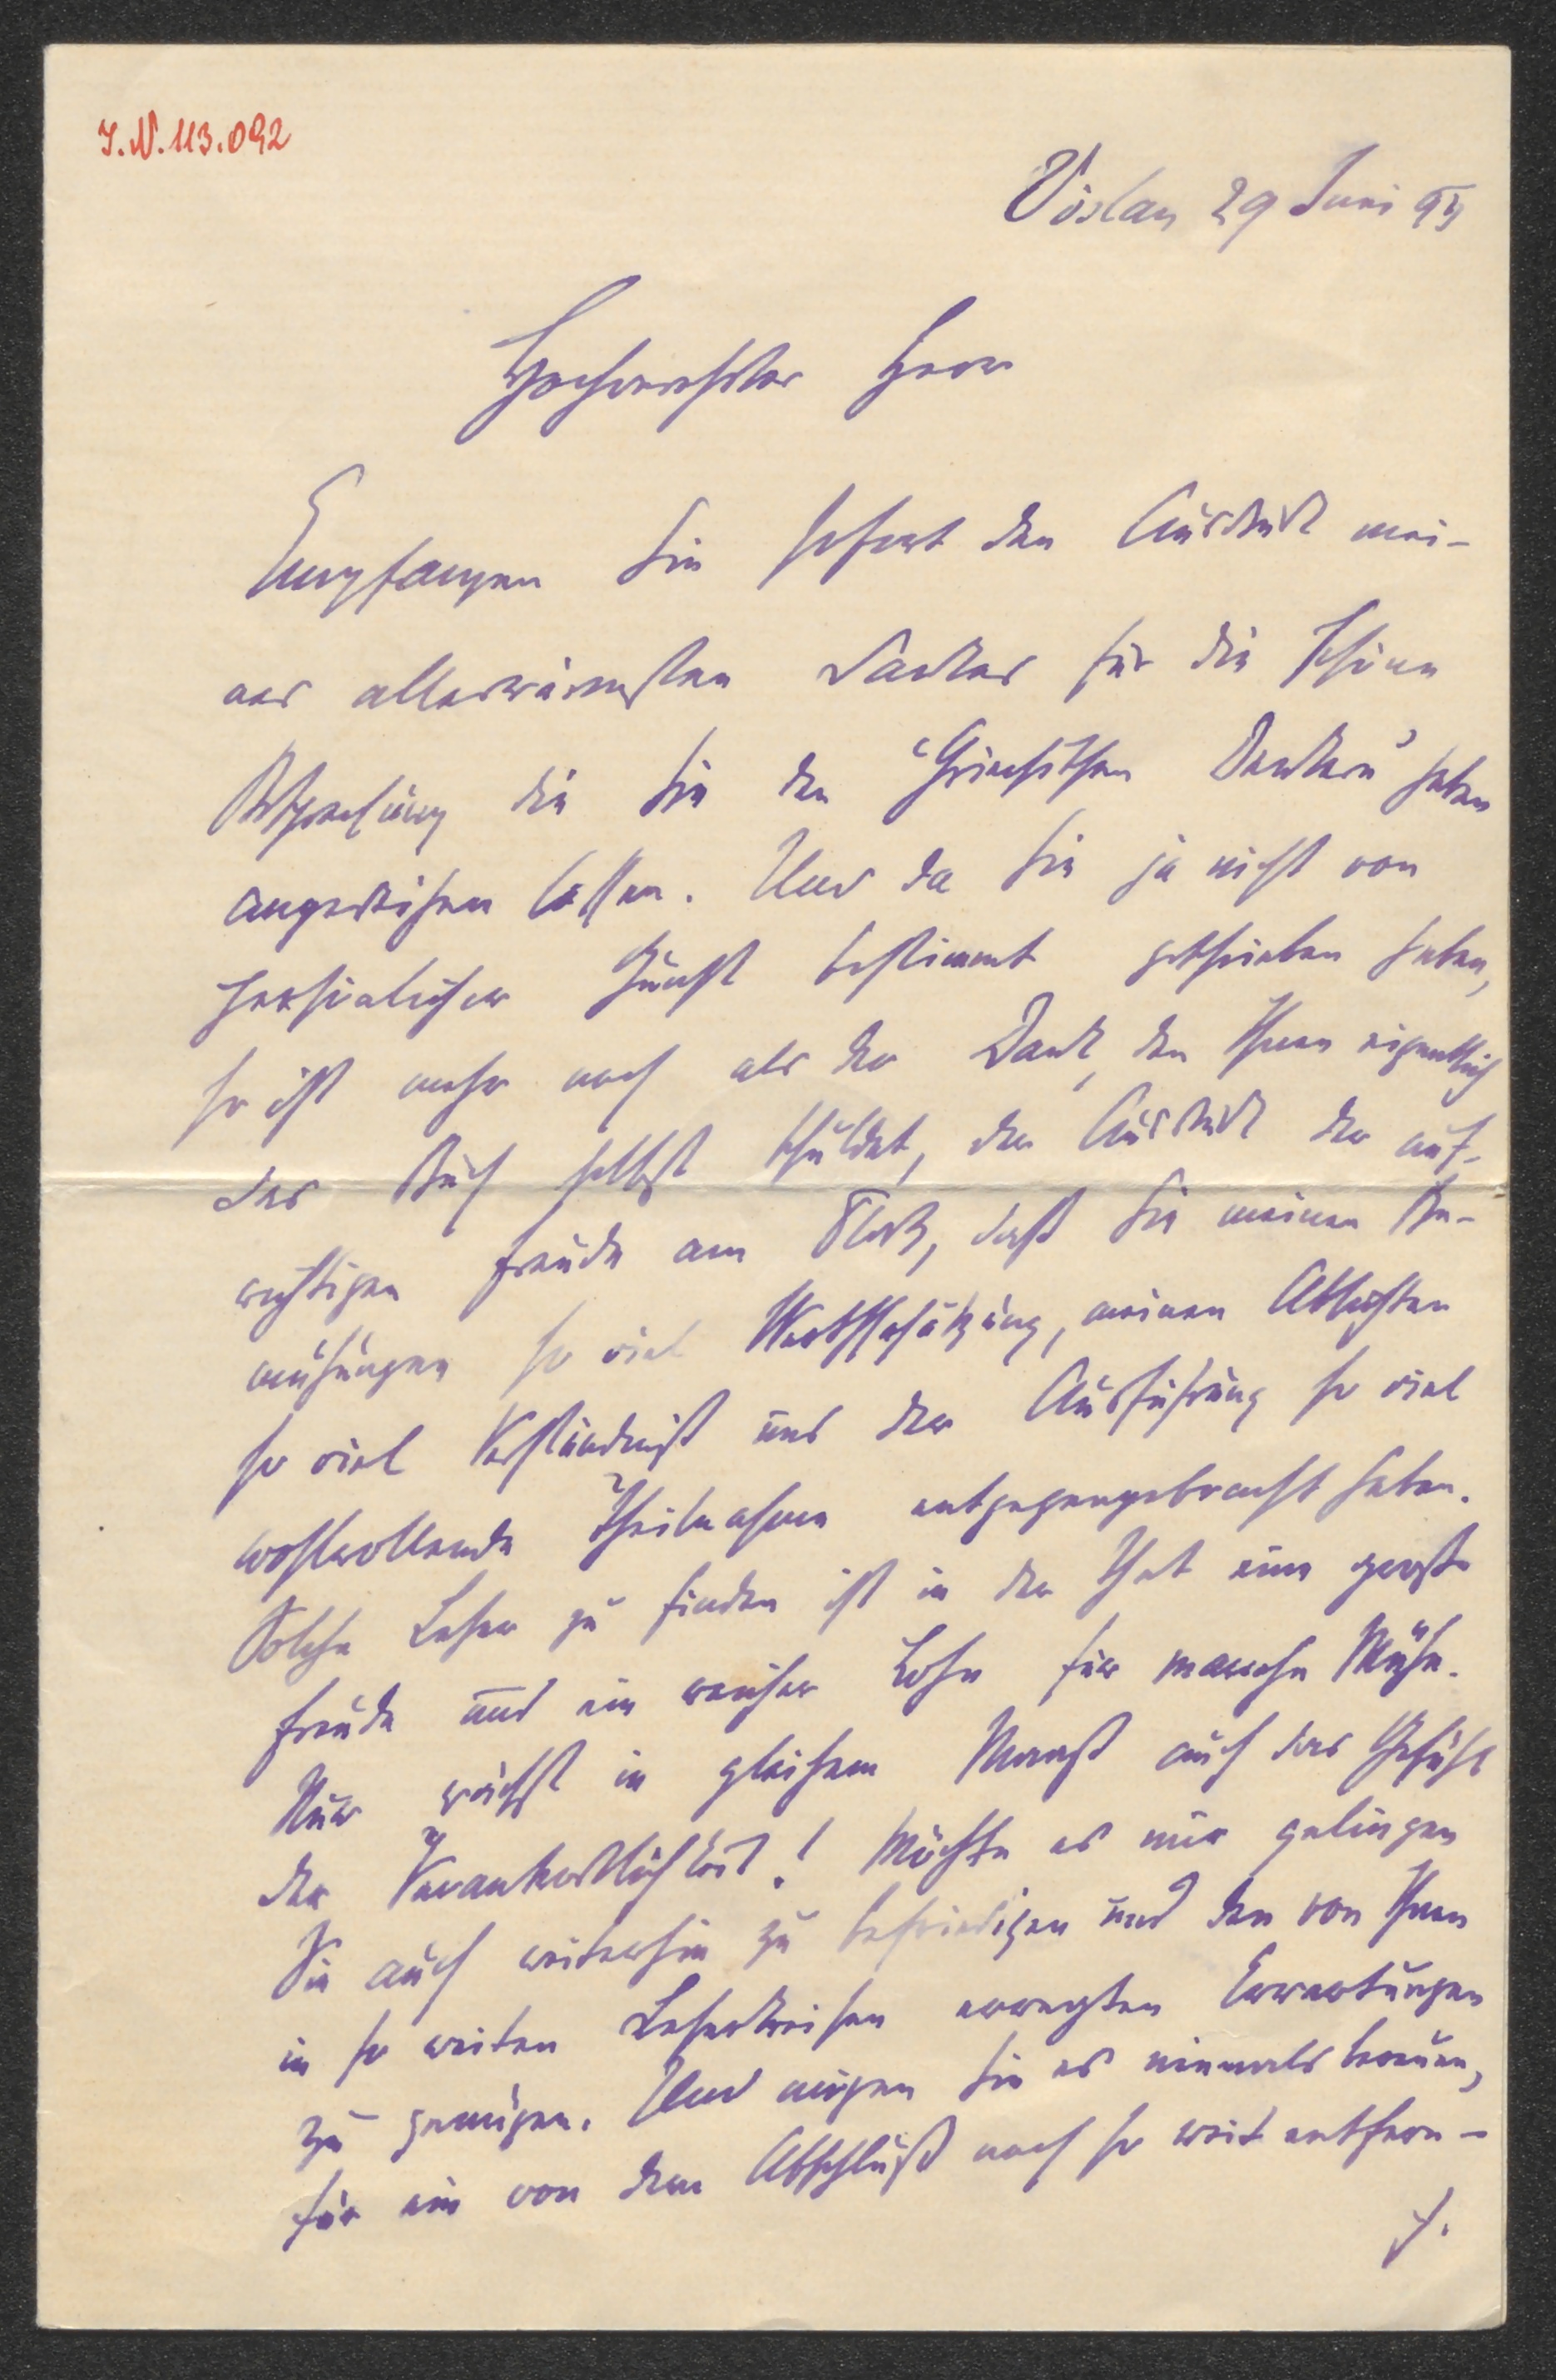 J.N.113.092
Vöslau 29 Juni 95
Hochverehrter Herr
Empfangen Sie sofort den Ausdruck mei-
nes allerwärmsten Dankes für die schöne
Besprechung die Sie den "Griechischen Denkern" haben
angedeihen lassen. Und da Sie ja nicht von
persönlicher Gunst bestimmt geschrieben haben,
so ist mehr noch als der Dank, den Ihnen eigentlich
das Buch selbst schuldet, der Ausdruck der auf-
richtigen Freude am Platz, daß Sie meinen Be-
mühungen so viel Werthschätzung, meinen Absichten
so viel Verständniß und der Ausführung so viel
wohlwollende Theilnahme entgegengebracht haben.
Solche Leser zu finden ist in der That eine große
Freude und ein reicher Lohn für manche Mühe.
Nur wächst in gleichem Maaß auch das Gefühl
der Verantwortlichkeit! Möchte es mir gelingen
Sie auch weiterhin zu befriedigen und den von Ihnen
in so weiten Leserkreisen erregten Erwartungen
zu genügen. Und mögen Sie es niemals bereuen,
für ein von dem Abschluß noch so weit entfern-